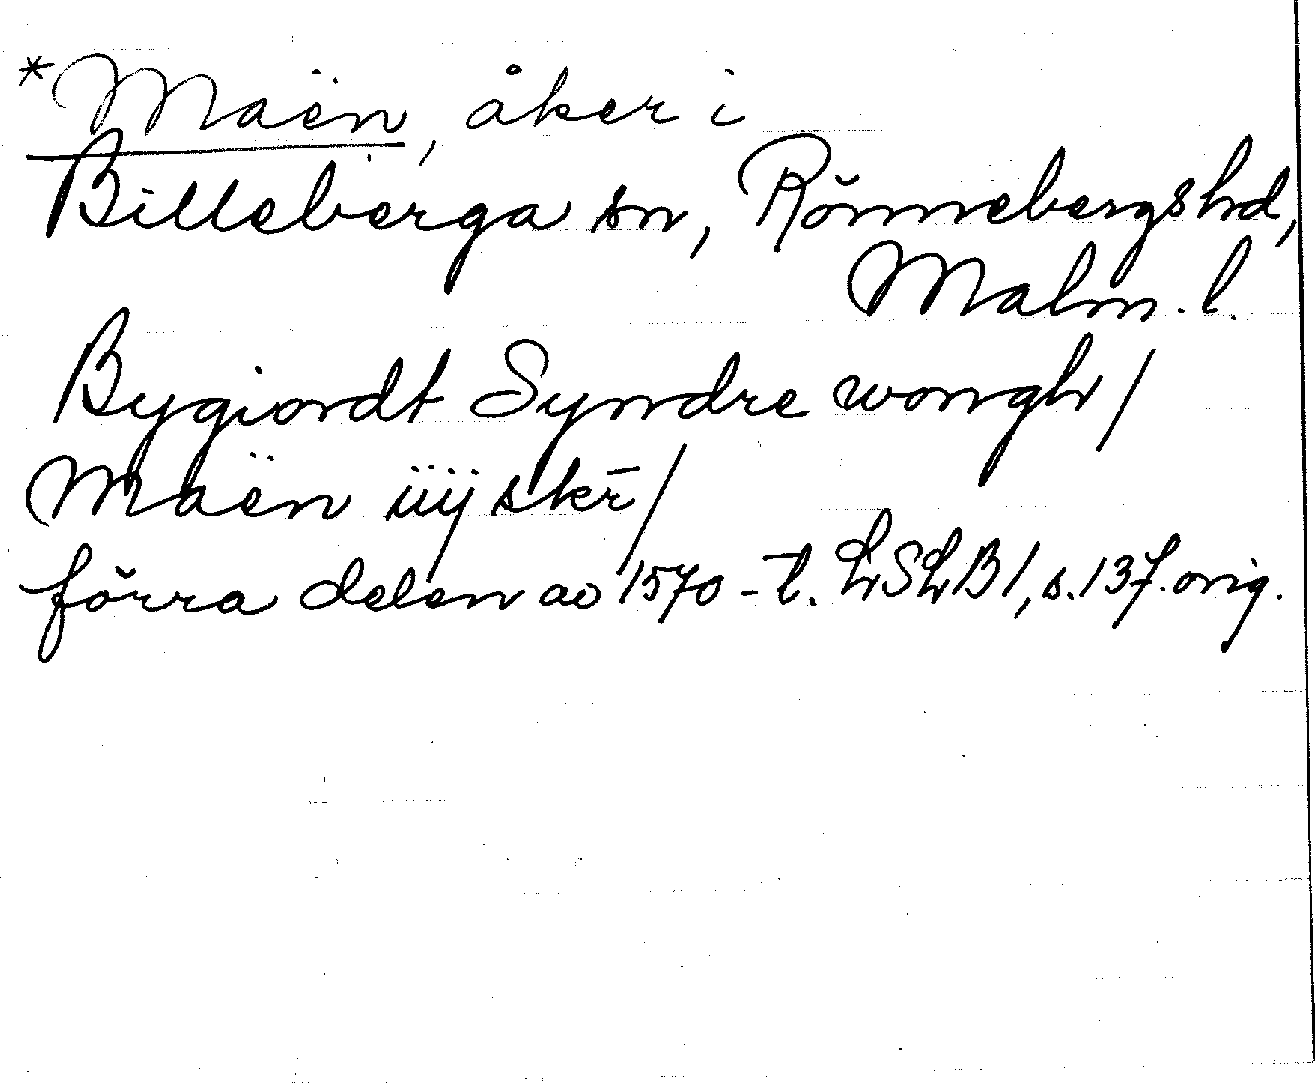 *Maën, åker i
Billeberga sn, Rönnebergs hd,
Malm. l.
Bygiordt Syndre wongh /
Maën iiij skr̄ /
förra delen av 1570-t. LSLB 1, s. 137. orig.